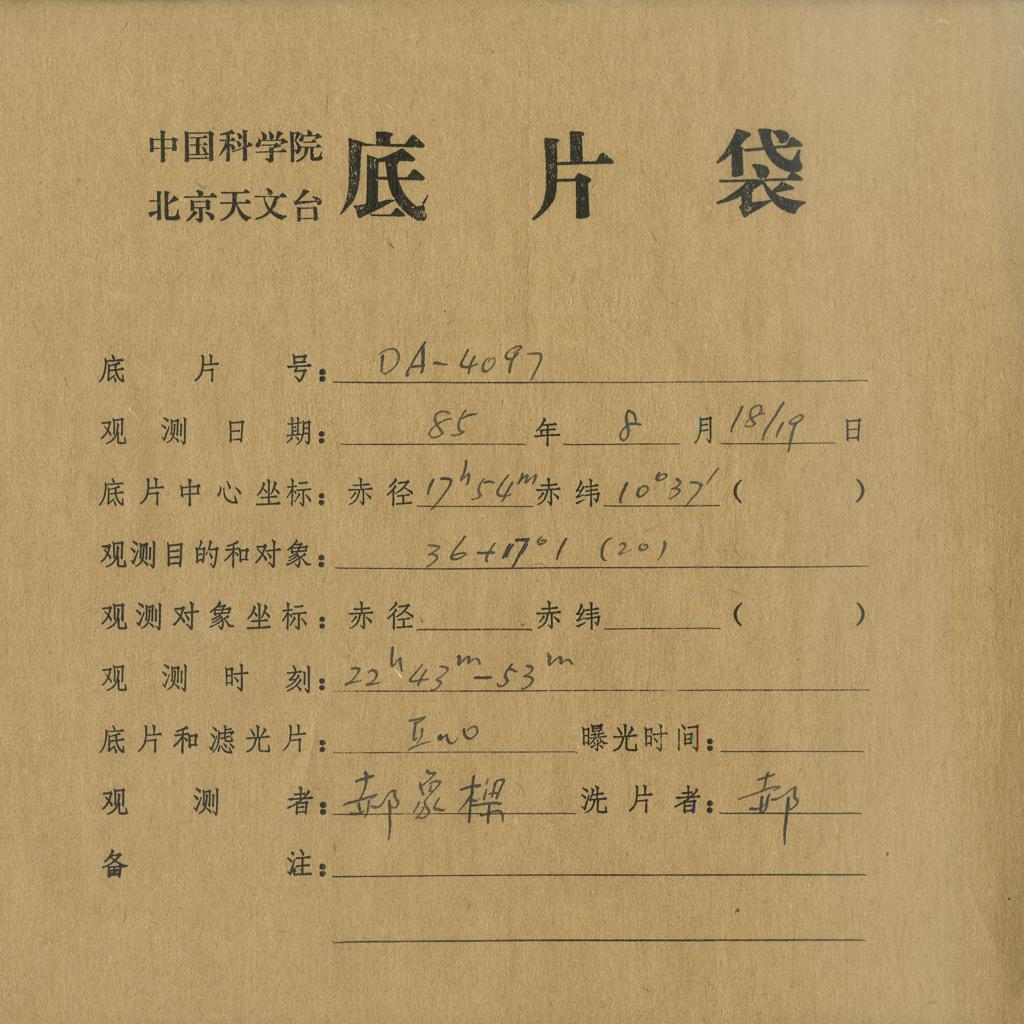 中国科学院
北京天文台
底片袋
底片号：DA-4097
观测日期：85年8月18/19日
底片中心坐标：赤径17h54m赤纬10°37′（ ）
观测目的和对象：36+17°1 (20)
观测对象坐标：赤径 赤纬 （ ）
观测时刻：22h43m-53m
底片和滤光片：IIaO 曝光时间：
观测者：郝象樑 洗片者：郝
备注：